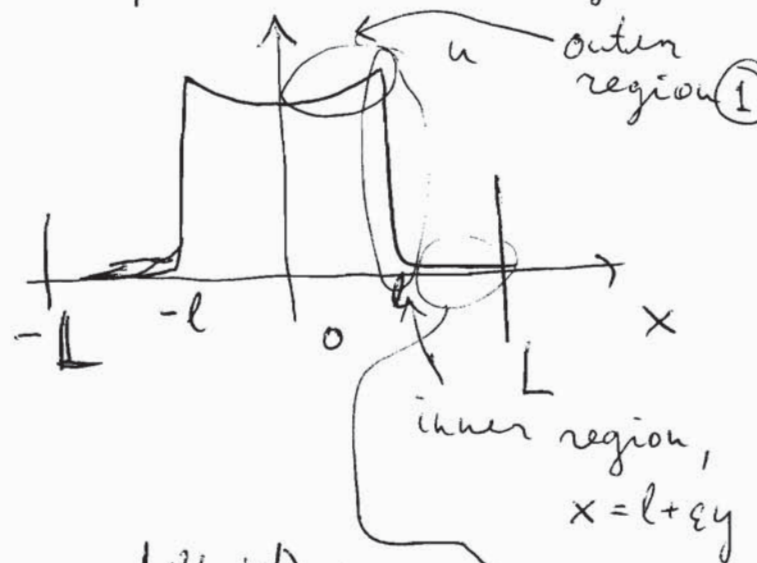 u
outer
region ①
-L
-l
0
l
x
L
inner region,
x = l + εy